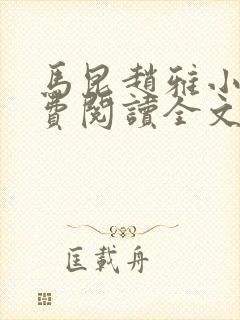 馬昆趙雅小
費閱讀全文
匡載舟